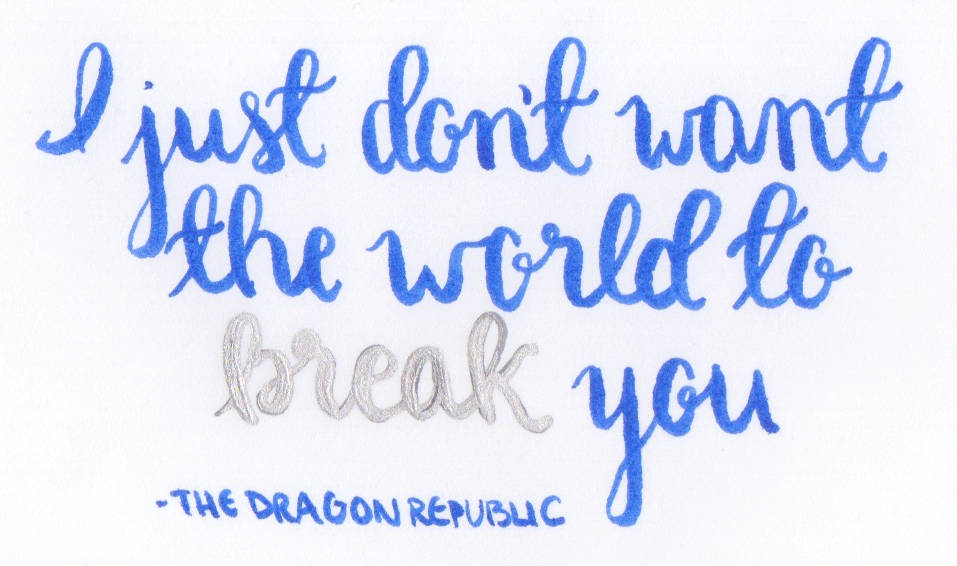 I just don't want
the world to
break you
-THE DRAGON REPUBLIC